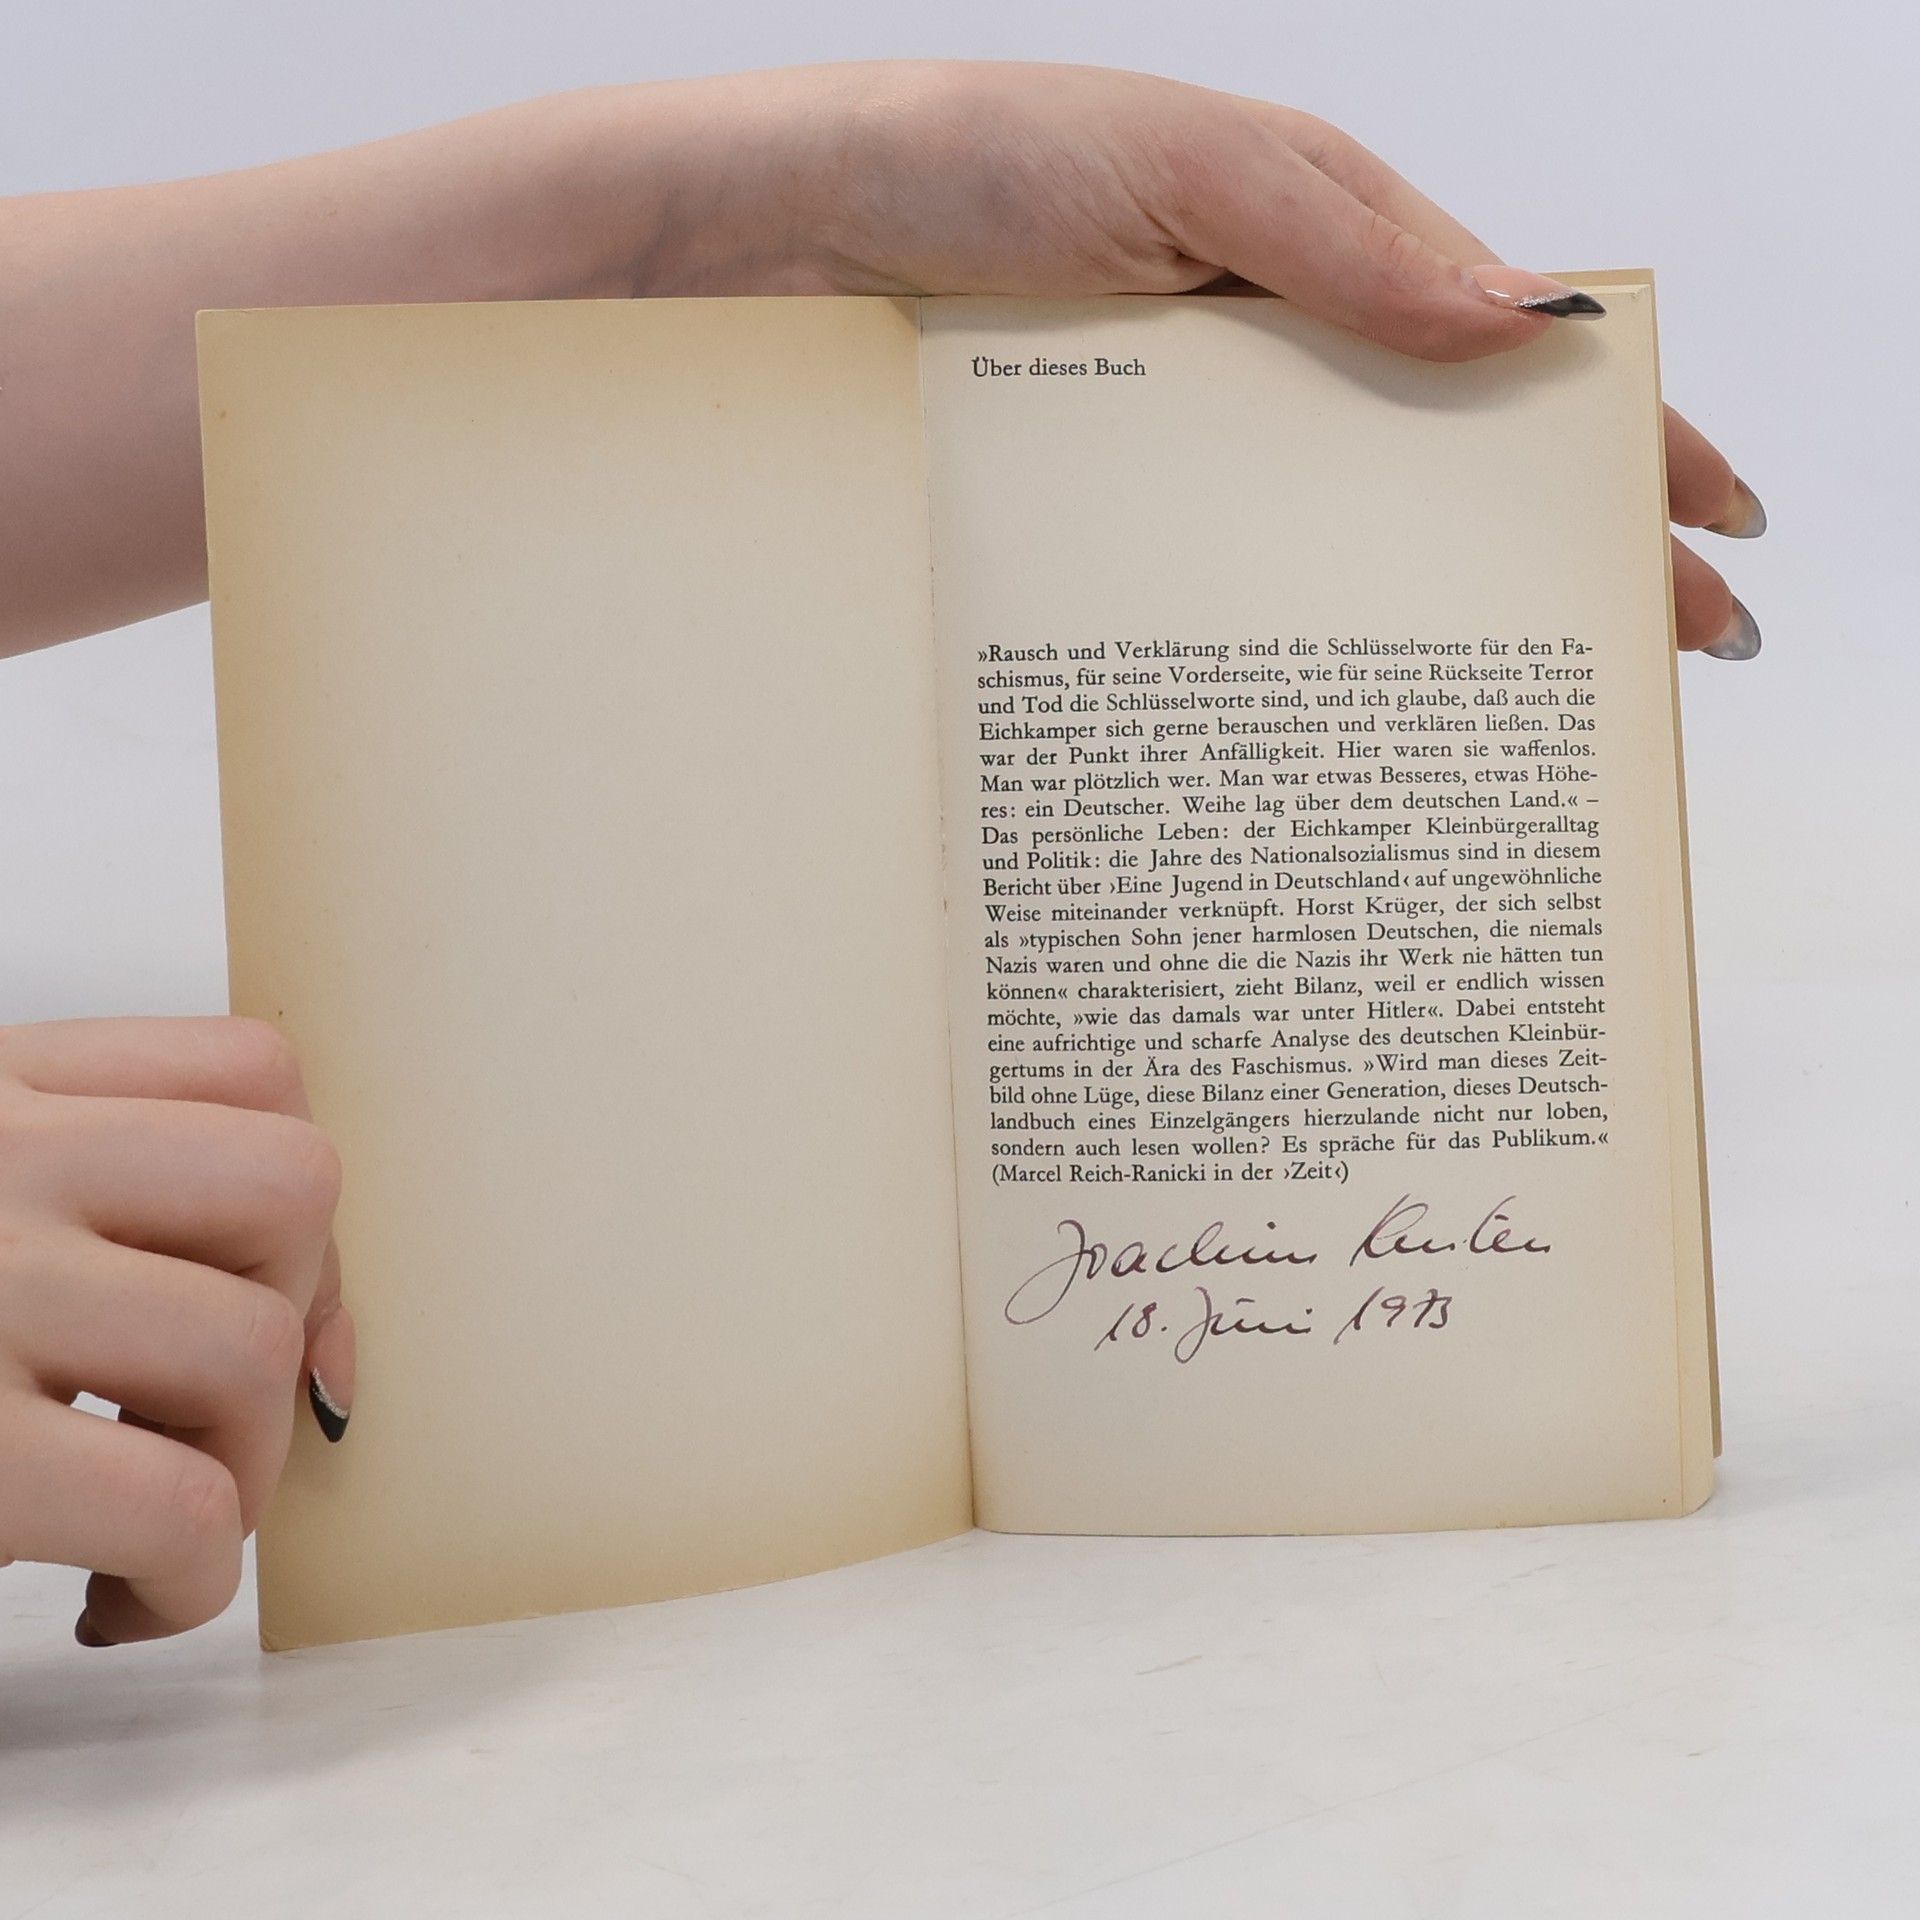 Über dieses Buch
»Rausch und Verklärung sind die Schlüsselworte für den Fa-
schismus, für seine Vorderseite, wie für seine Rückseite Terror
und Tod die Schlüsselworte sind, und ich glaube, daß auch die
Eichkamper sich gerne berauschen und verklären ließen. Das
war der Punkt ihrer Anfälligkeit. Hier waren sie waffenlos.
Man war plötzlich wer. Man war etwas Besseres, etwas Höhe-
res: ein Deutscher. Weihe lag über dem deutschen Land.« –
Das persönliche Leben: der Eichkamper Kleinbürgeralltag
und Politik: die Jahre des Nationalsozialismus sind in diesem
Bericht über ›Eine Jugend in Deutschland‹ auf ungewöhnliche
Weise miteinander verknüpft. Horst Krüger, der sich selbst
als »typischen Sohn jener harmlosen Deutschen, die niemals
Nazis waren und ohne die die Nazis ihr Werk nie hätten tun
können« charakterisiert, zieht Bilanz, weil er endlich wissen
möchte, »wie das damals war unter Hitler«. Dabei entsteht
eine aufrichtige und scharfe Analyse des deutschen Kleinbür-
gertums in der Ära des Faschismus. »Wird man dieses Zeit-
bild ohne Lüge, diese Bilanz einer Generation, dieses Deutsch-
landbuch eines Einzelgängers hierzulande nicht nur loben,
sondern auch lesen wollen? Es spräche für das Publikum.«
(Marcel Reich-Ranicki in der ›Zeit‹)
Joachim
18. Juni 1973